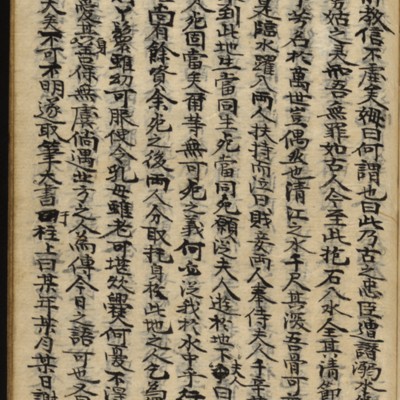 敎信不虛矣姆曰何謂也曰此乃古之忠臣遭讒溺水
姑之灵而吾無罪如古人今至此抱石入水全其清節
芳名於萬世豈偶然也清江之水千尺其深吾骨可
果臨水躍入兩人扶持而泣曰賤妾兩人奉侍夫人千辛
到此地生當同生死當同死願從夫人遊於地下夫人曰
人死固當矣爾等無可死之義何必從我於水中予行
尚有餘資余死之後兩人分取托身於此地之人乞爲
鬟雖幼可服使令乳母雖老可堪炊爨人何憂不
愛其身善保無虞倘遇北方之人爲傳今日之語可也又曰
大矣不可不明遂取筆大書于柱上曰某年某月某日謝